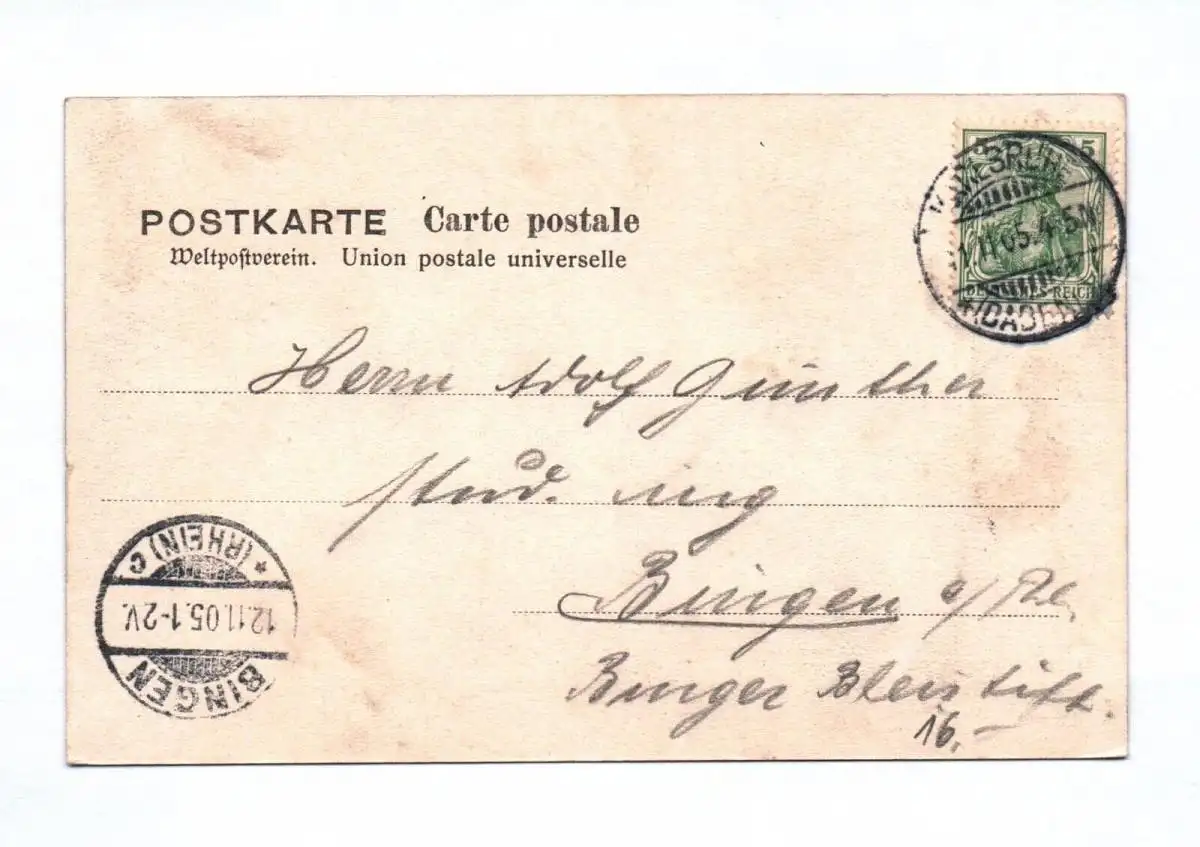 POSTKARTE Carte postale
Weltpostverein. Union postale universelle
5
KARLSRUHE
11.05.4-5N
DEUTSCHES REICH
(BADEN)
Herrn Adolf Günther
stud. ing
Bingen a/Rh.
Binger
16.-
BINGEN
12.11.05.1-2V.
* (RHEIN) c